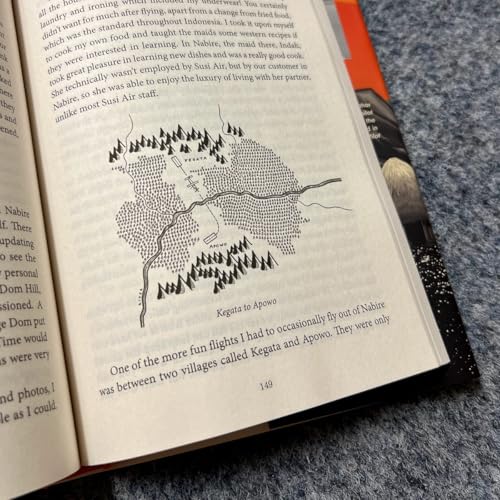 all the hou
laundry and ironing which included my underwear. You certainly
didn't want for much after flying, apart from a change from fried food,
which was the standard throughout Indonesia. I took it upon myself
to cook my own food and taught the maids some western recipes if
they were interested in learning. In Nabire, the maid there, Indah,
took great pleasure in learning new dishes and was a really good cook.
She technically wasn't employed by Susi Air, but by our customer in
Nabire, so she was able to enjoy the luxury of living with her partner,
unlike most Susi Air staff.
KEGATA
APOWO
Kegata to Apowo
One of the more fun flights I had to occasionally fly out of Nabire
was between two villages called Kegata and Apowo. They were only
149
they
and
ened,
Nabire
lf. There
updating
to see the
personal
Dom Hill,
ssioned. A
ge Dom put
Time would
s were very
nd photos, I
le as I could.
the
d in